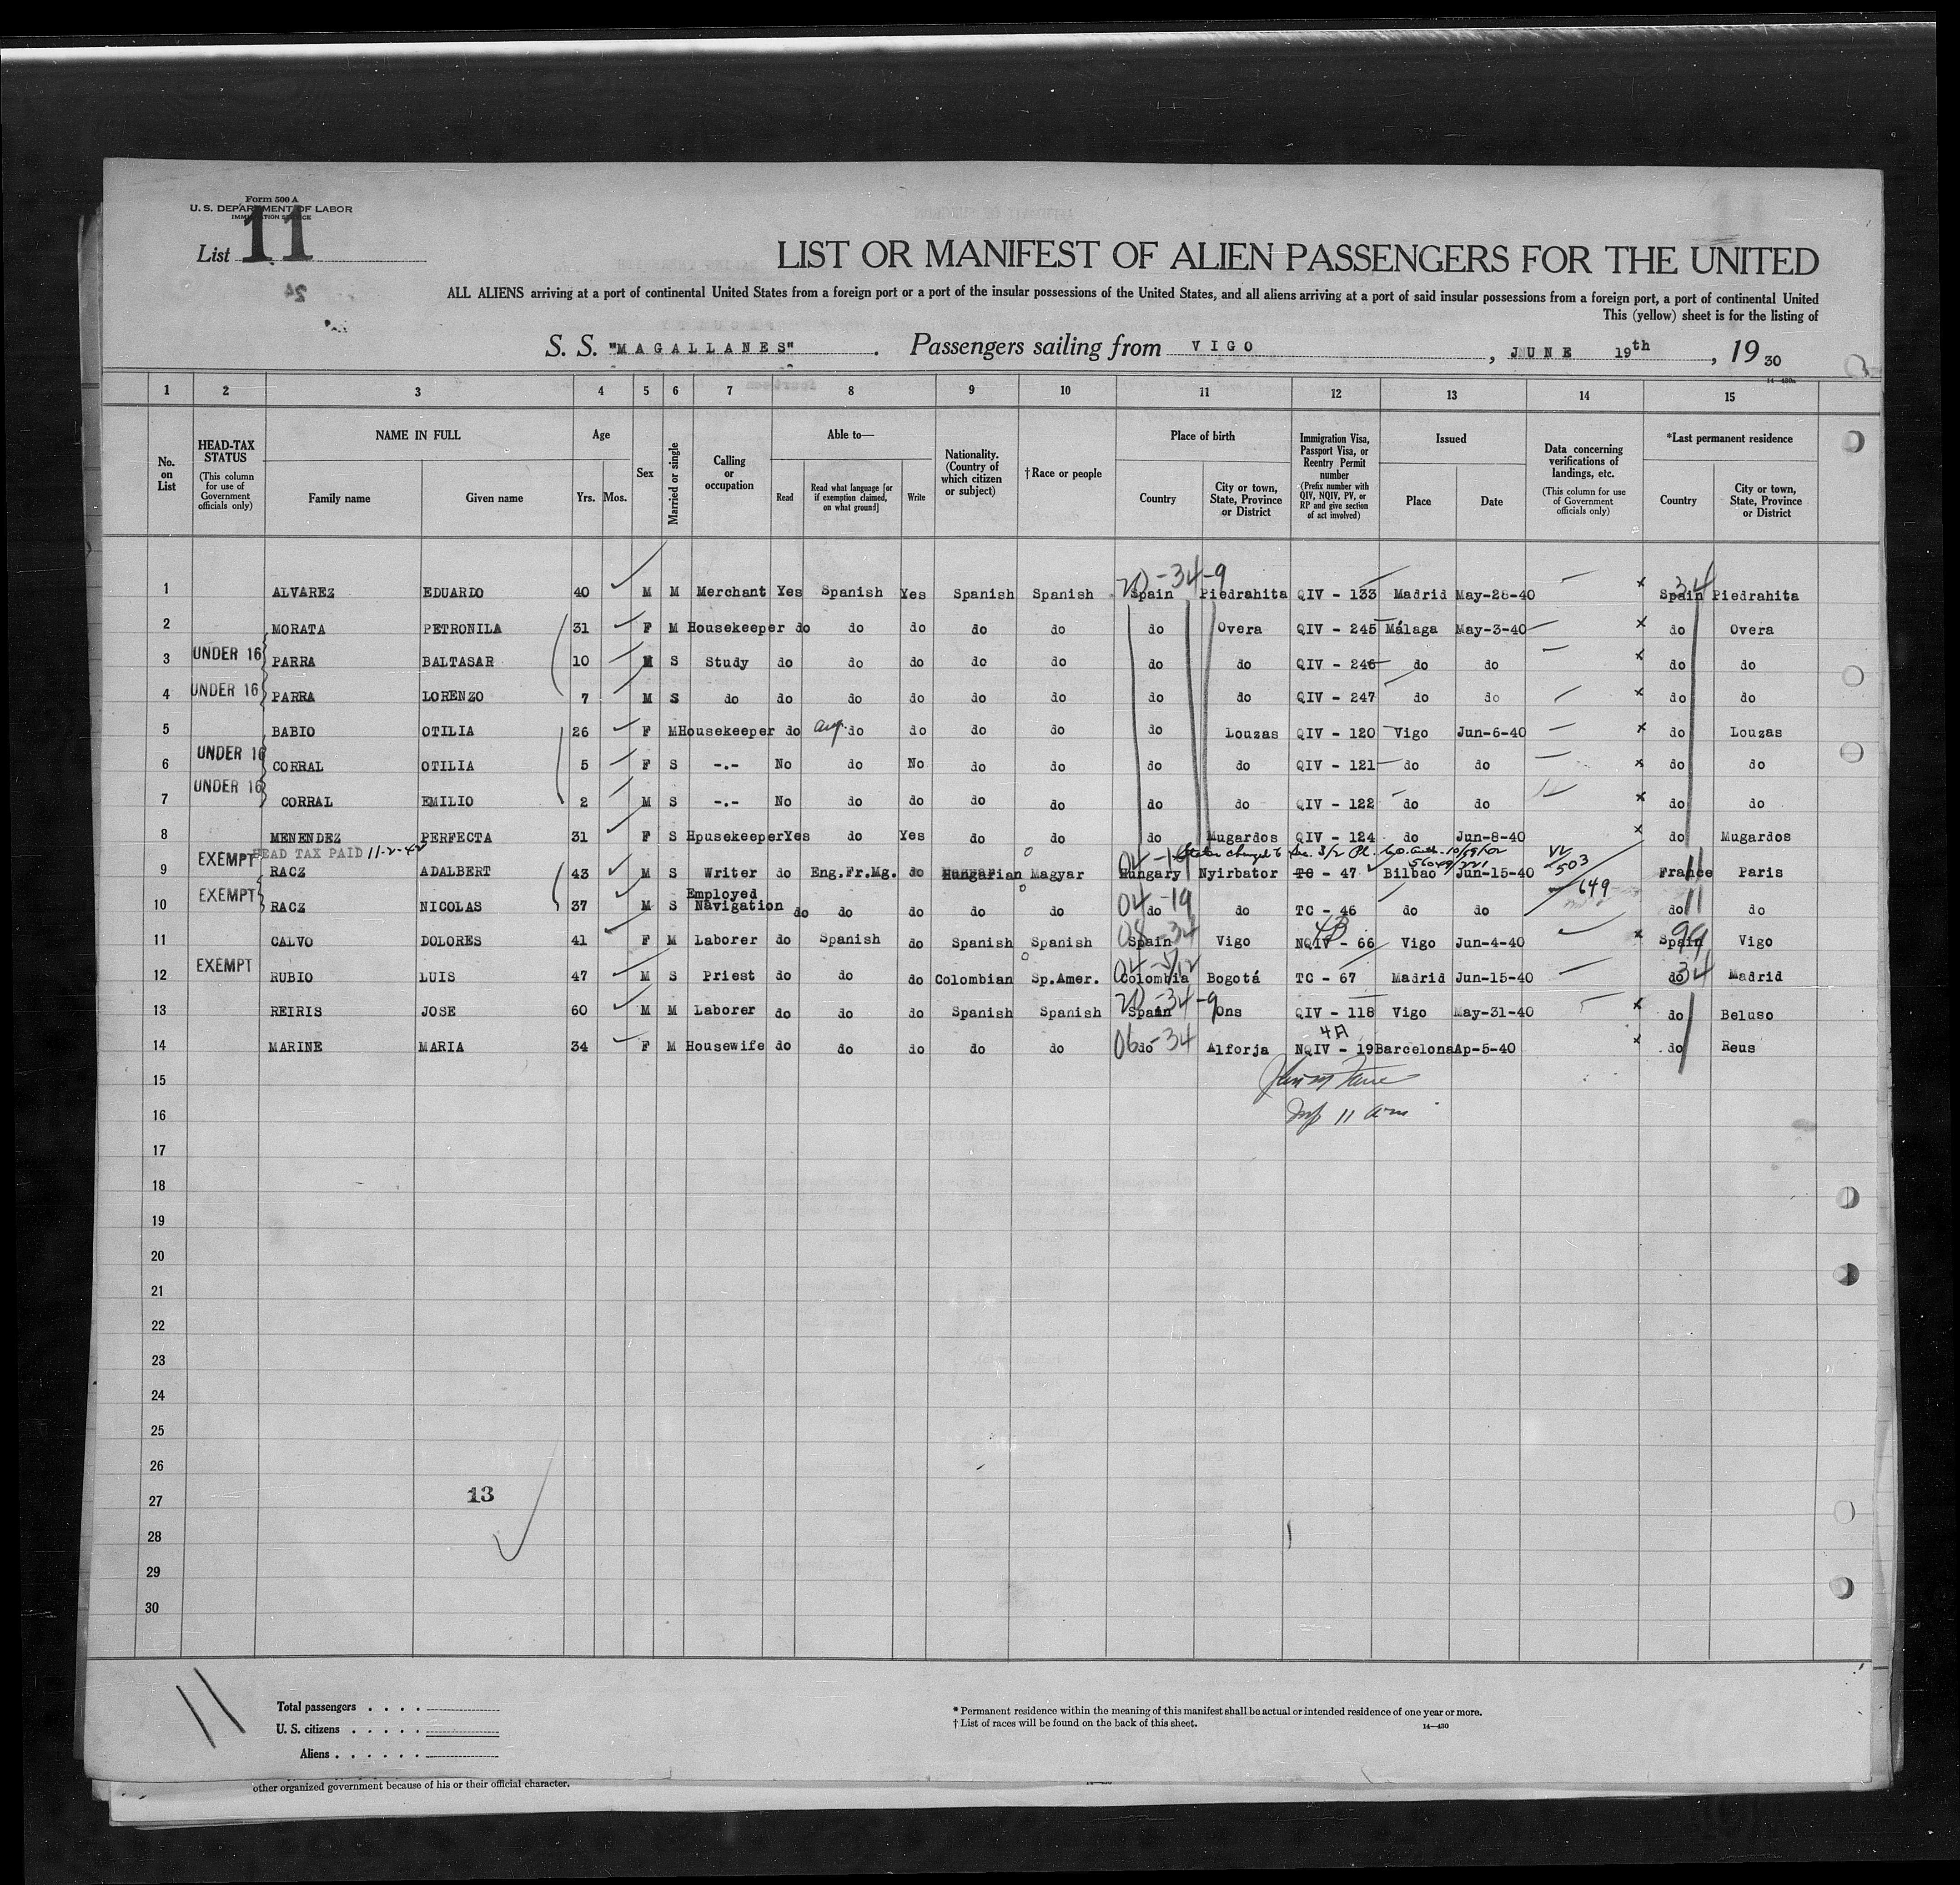 Form 500 A
U. S. DEPARTMENT OF LABOR
IMMIGRATION SERVICE
List 11
LIST OR MANIFEST OF ALIEN PASSENGERS FOR THE UNITED
ALL ALIENS arriving at a port of continental United States from a foreign port or a port of the insular possessions of the United States, and all aliens arriving at a port of said insular possessions from a foreign port, a port of continental United
This (yellow) sheet is for the listing of
S. S. "MAGALLANES" . Passengers sailing from VIGO , JUNE 19th , 19 30
1 2 3 4 5 6 7 8 9 10 11 12 13 14 15
No. on List
HEAD-TAX STATUS (This column for use of Government officials only)
NAME IN FULL Family name Given name
Age Yrs. Mos.
Sex
Married or single
Calling or occupation
Able to— Read Read what language [or if exemption claimed, on what ground] Write
Nationality. (Country of which citizen or subject)
†Race or people
Place of birth Country City or town, State, Province or District
Immigration Visa, Passport Visa, or Reentry Permit number (Prefix number with QIV, NQIV, PV, or RP and give section of act involved)
Issued Place Date
Data concerning verifications of landings, etc. (This column for use of Government officials only)
*Last permanent residence Country City or town, State, Province or District
20-34-9 34
1 ALVAREZ EDUARDO 40 M M Merchant Yes Spanish Yes Spanish Spanish Spain Piedrahita QIV - 133 Madrid May-28-40 x Spain Piedrahita
2 MORATA PETRONILA 31 F M Housekeeper do do do do do do Overa QIV - 245 Málaga May-3-40 x do Overa
3 UNDER 16 PARRA BALTASAR 10 M S Study do do do do do do do QIV - 246 do do x do do
4 UNDER 16 PARRA LORENZO 7 M S do do do do do do do do QIV - 247 do do x do do
5 BABIO OTILIA 26 F M Housekeeper do do do do do do Louzas QIV - 120 Vigo Jun-6-40 x do Louzas
6 UNDER 16 CORRAL OTILIA 5 F S -.- No do No do do do do QIV - 121 do do x do do
7 UNDER 16 CORRAL EMILIO 2 M S -.- No do do do do do do QIV - 122 do do x do do
8 MENENDEZ PERFECTA 31 F S Hpusekeeper Yes do Yes do do do Mugardos QIV - 124 do Jun-8-40 x do Mugardos
HEAD TAX PAID 11-2-42
9 EXEMPT RACZ ADALBERT 43 M S Writer do Eng.Fr.Mg. do Hungarian Magyar Hungary Nyirbator TC - 47 Bilbao Jun-15-40 503 France Paris
10 EXEMPT RACZ NICOLAS 37 M S Employed Navigation do do do do do 04-19 do do TC - 46 do do 649 do 11 do
11 CALVO DOLORES 41 F M Laborer do Spanish do Spanish Spanish Spain Vigo NQIV - 66 Vigo Jun-4-40 x Spain 99 Vigo
12 EXEMPT RUBIO LUIS 47 M S Priest do do do Colombian Sp.Amer. Colombia Bogotá TC - 67 Madrid Jun-15-40 do 34 Madrid
13 REIRIS JOSE 60 M M Laborer do do do Spanish Spanish 20-34-9 Spain Ons QIV - 118 Vigo May-31-40 x do Beluso
14 MARINE MARIA 34 F M Housewife do do do do do 06-34 do Alforja NQIV - 19 Barcelona Ap-5-40 x do Reus
15
16
17
18
19
20
21
22
23
24
25
26
27
28
29
30
13
11
Total passengers . . . .
U. S. citizens . . . . .
Aliens . . . . . .
* Permanent residence within the meaning of this manifest shall be actual or intended residence of one year or more.
† List of races will be found on the back of this sheet.
14—430
other organized government because of his or their official character.